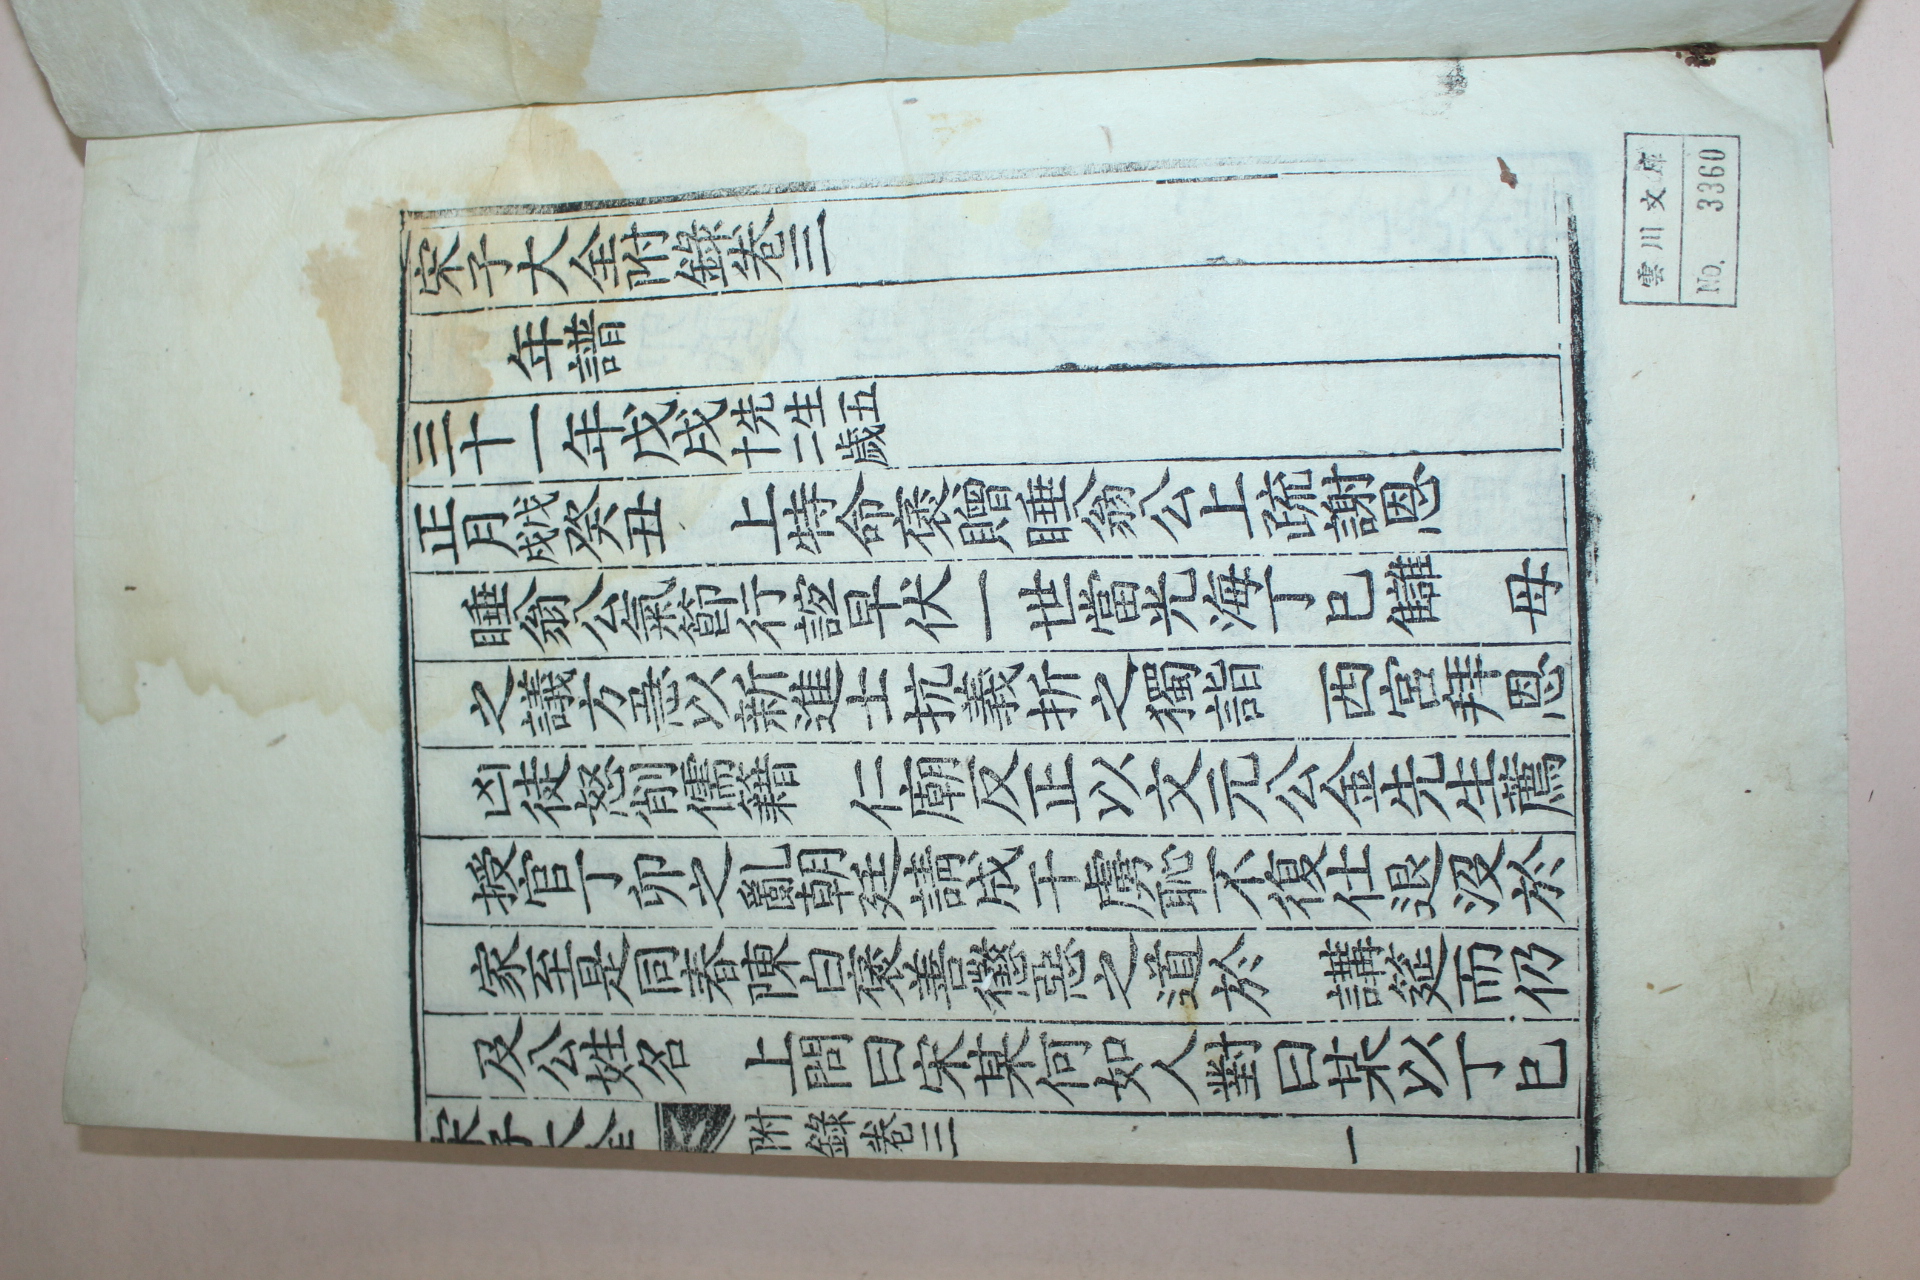 宋子大全附錄卷三
年譜
三十一年戊戌先生五十二歲
正月 癸丑 上特命褒贈睡翁公上疏謝恩
睡翁公氣節行誼早伏一世當光海丁巳讎 母
之議方熾以新進士抗義折之獨詣 西宮拜恩
凶徒怒削儒籍 仁廟反正以文元公金先生薦
授官丁卯之亂朝廷請成于虜恥不復仕退沒於
家至是同春陳白褒善懲惡之道於 講筵而仍
及公姓名 上問曰宋某何如人對曰某以丁巳
宋子大全 附錄卷三 一
雲川文庫
No. 3360